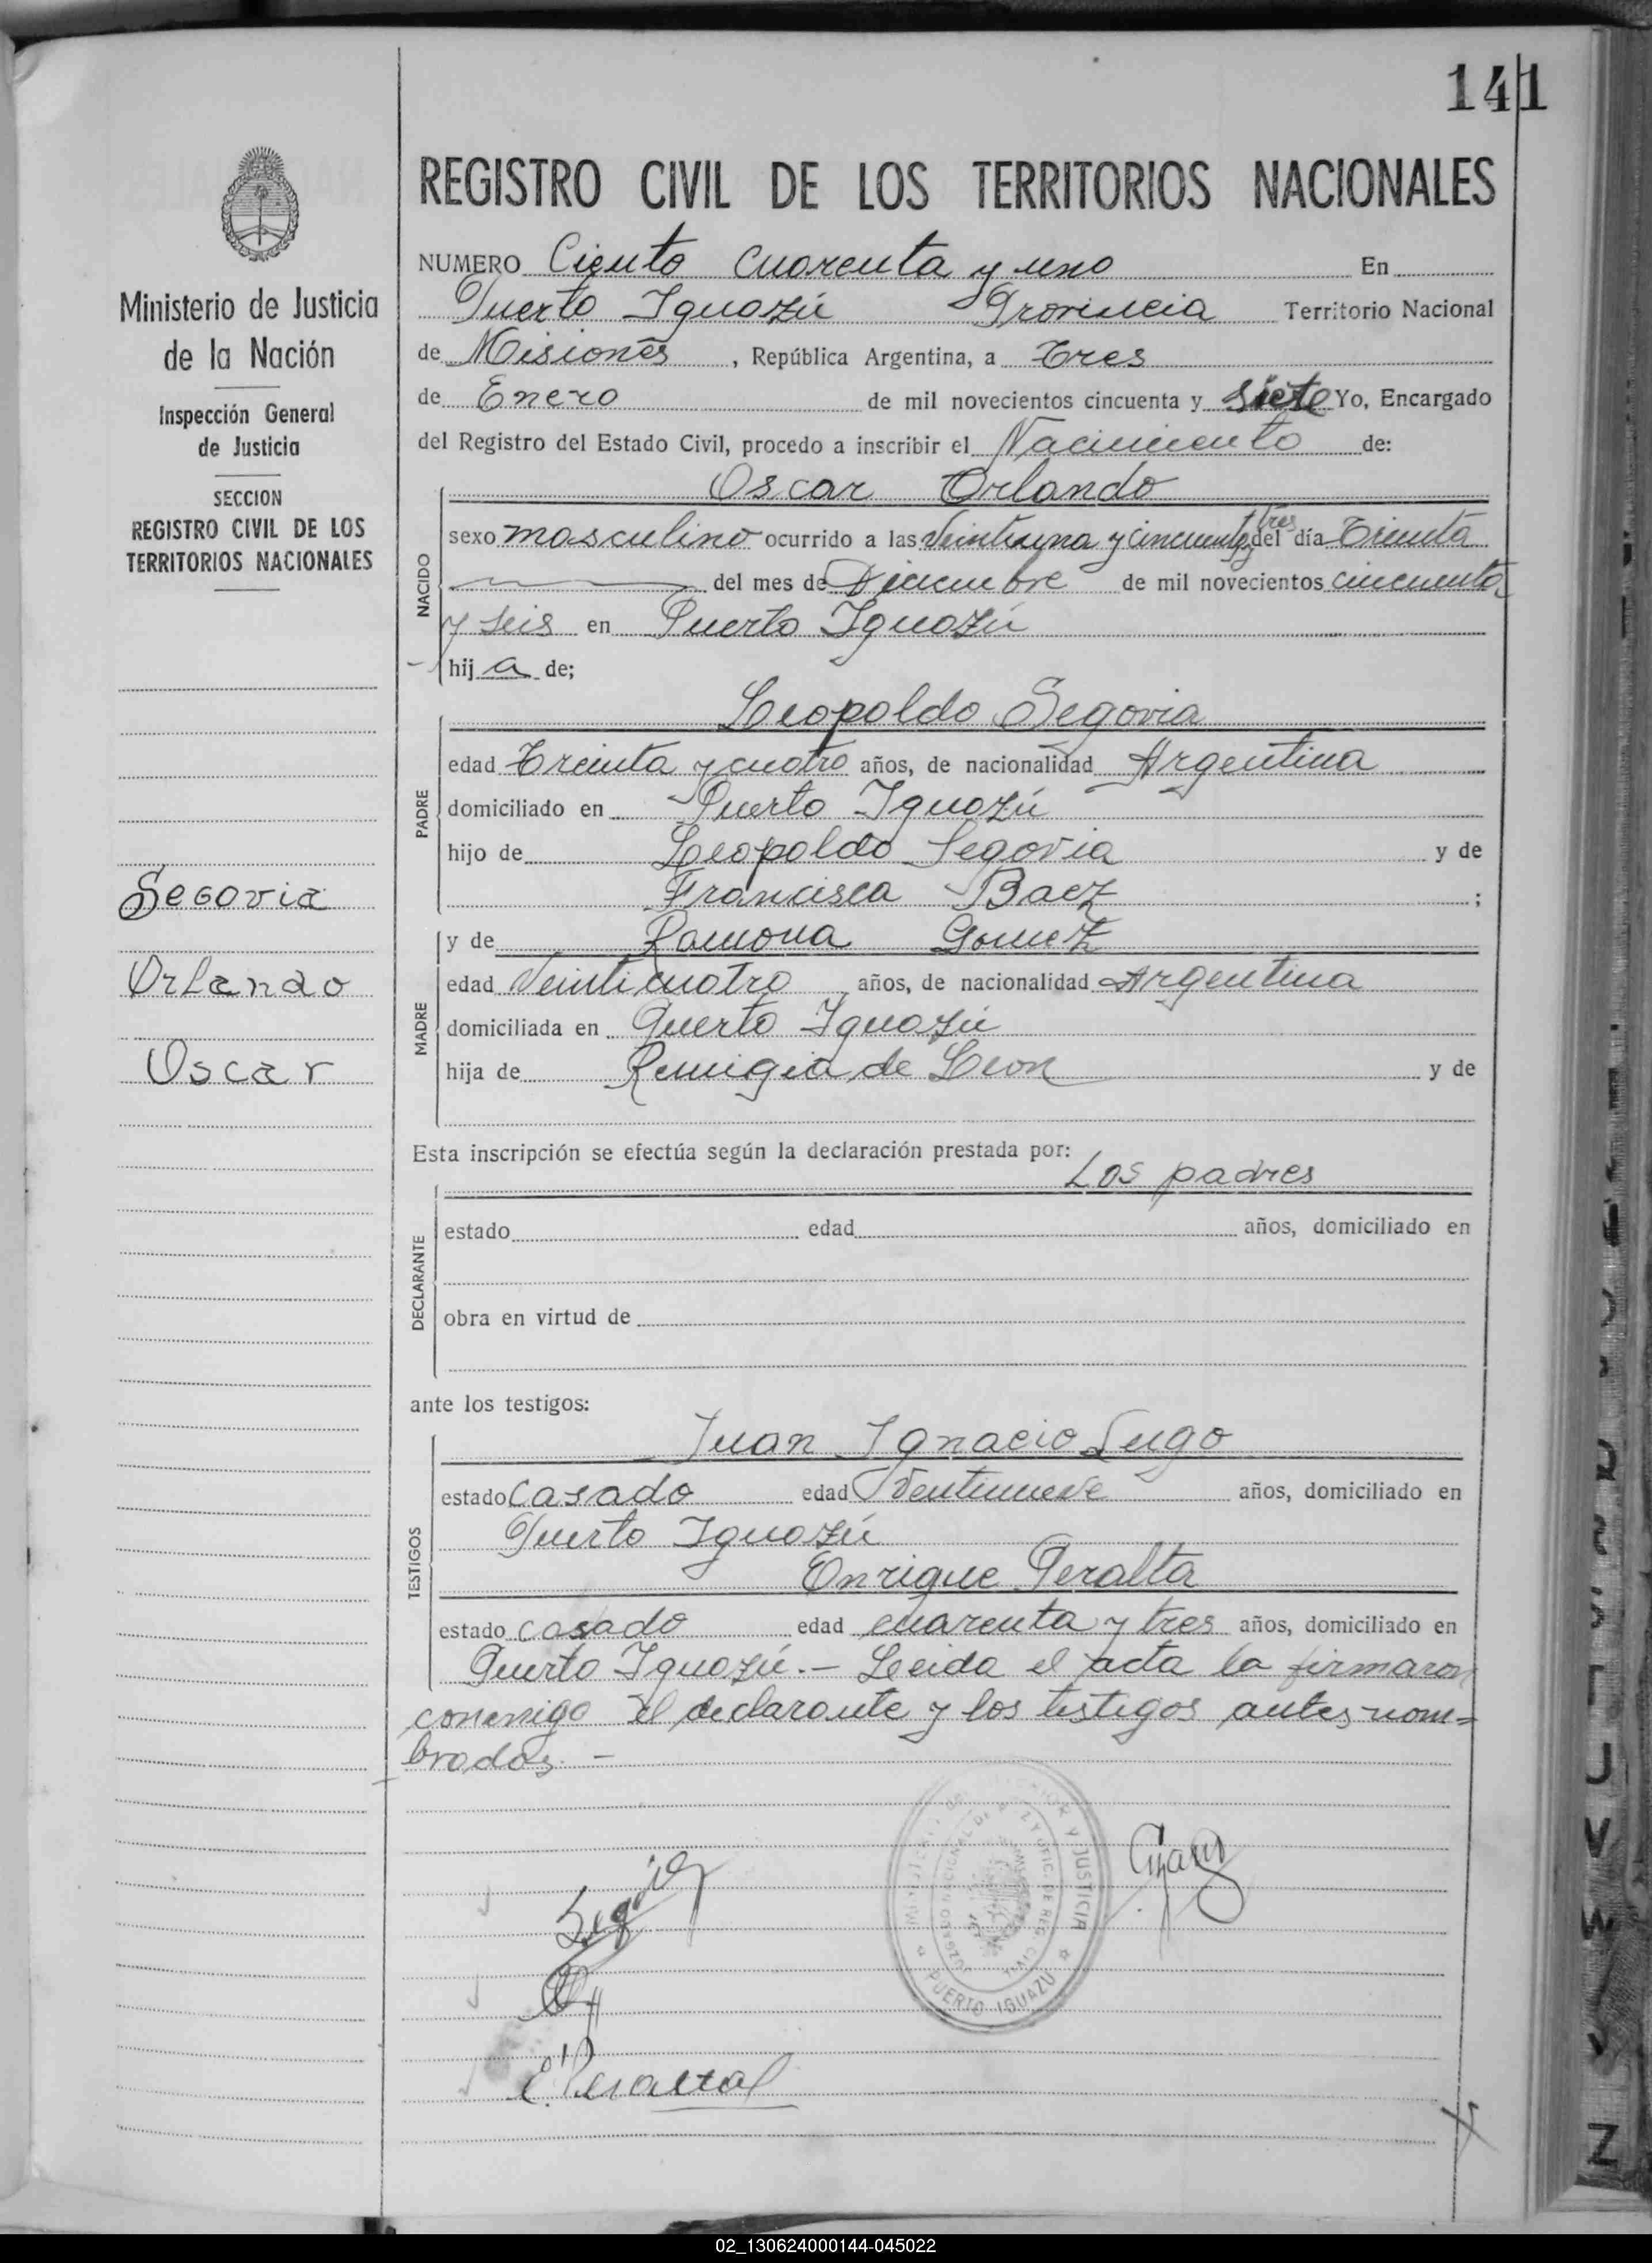 141
REGISTRO CIVIL DE LOS TERRITORIOS NACIONALES
Ministerio de Justicia
de la Nación
Inspección General
de Justicia
SECCION
REGISTRO CIVIL DE LOS
TERRITORIOS NACIONALES
Segovia
Orlando
Oscar
NUMERO Ciento Cuarenta y uno En
Puerto Iguazú Provincia Territorio Nacional
de Misiones, República Argentina, a Tres
de Enero de mil novecientos cincuenta y siete Yo, Encargado
del Registro del Estado Civil, procedo a inscribir el Nacimiento de:
Oscar Orlando
NACIDO
tres
sexo masculino ocurrido a las Veintiuna y cincuenta del día Treinta
del mes de Diciembre de mil novecientos cincuenta
y seis en Puerto Iguazú
hij a de;
Leopoldo Segovia
PADRE
edad Treinta y cuatro años, de nacionalidad Argentina
domiciliado en Puerto Iguazú
hijo de Leopoldo Segovia y de
Francisca Baez ;
y de Ramona Gomez
MADRE
edad Veinticuatro años, de nacionalidad Argentina
domiciliada en Puerto Iguazú
hija de Remigia de Leon y de
Esta inscripción se efectúa según la declaración prestada por:
Los padres
DECLARANTE
estado edad años, domiciliado en
obra en virtud de
ante los testigos:
Juan Ignacio Lugo
TESTIGOS
estado Casado edad Ventinueve años, domiciliado en
Puerto Iguazú
Enrique Peralta
estado casado edad cuarenta y tres años, domiciliado en
Puerto Iguazú.- Leeida el acta la firmaron
conmigo el declarante y los testigos antes nom=
brados.-
Segovia
E. Peralta
JUSTICIA
PUERTO IGUAZU
02_130624000144-045022